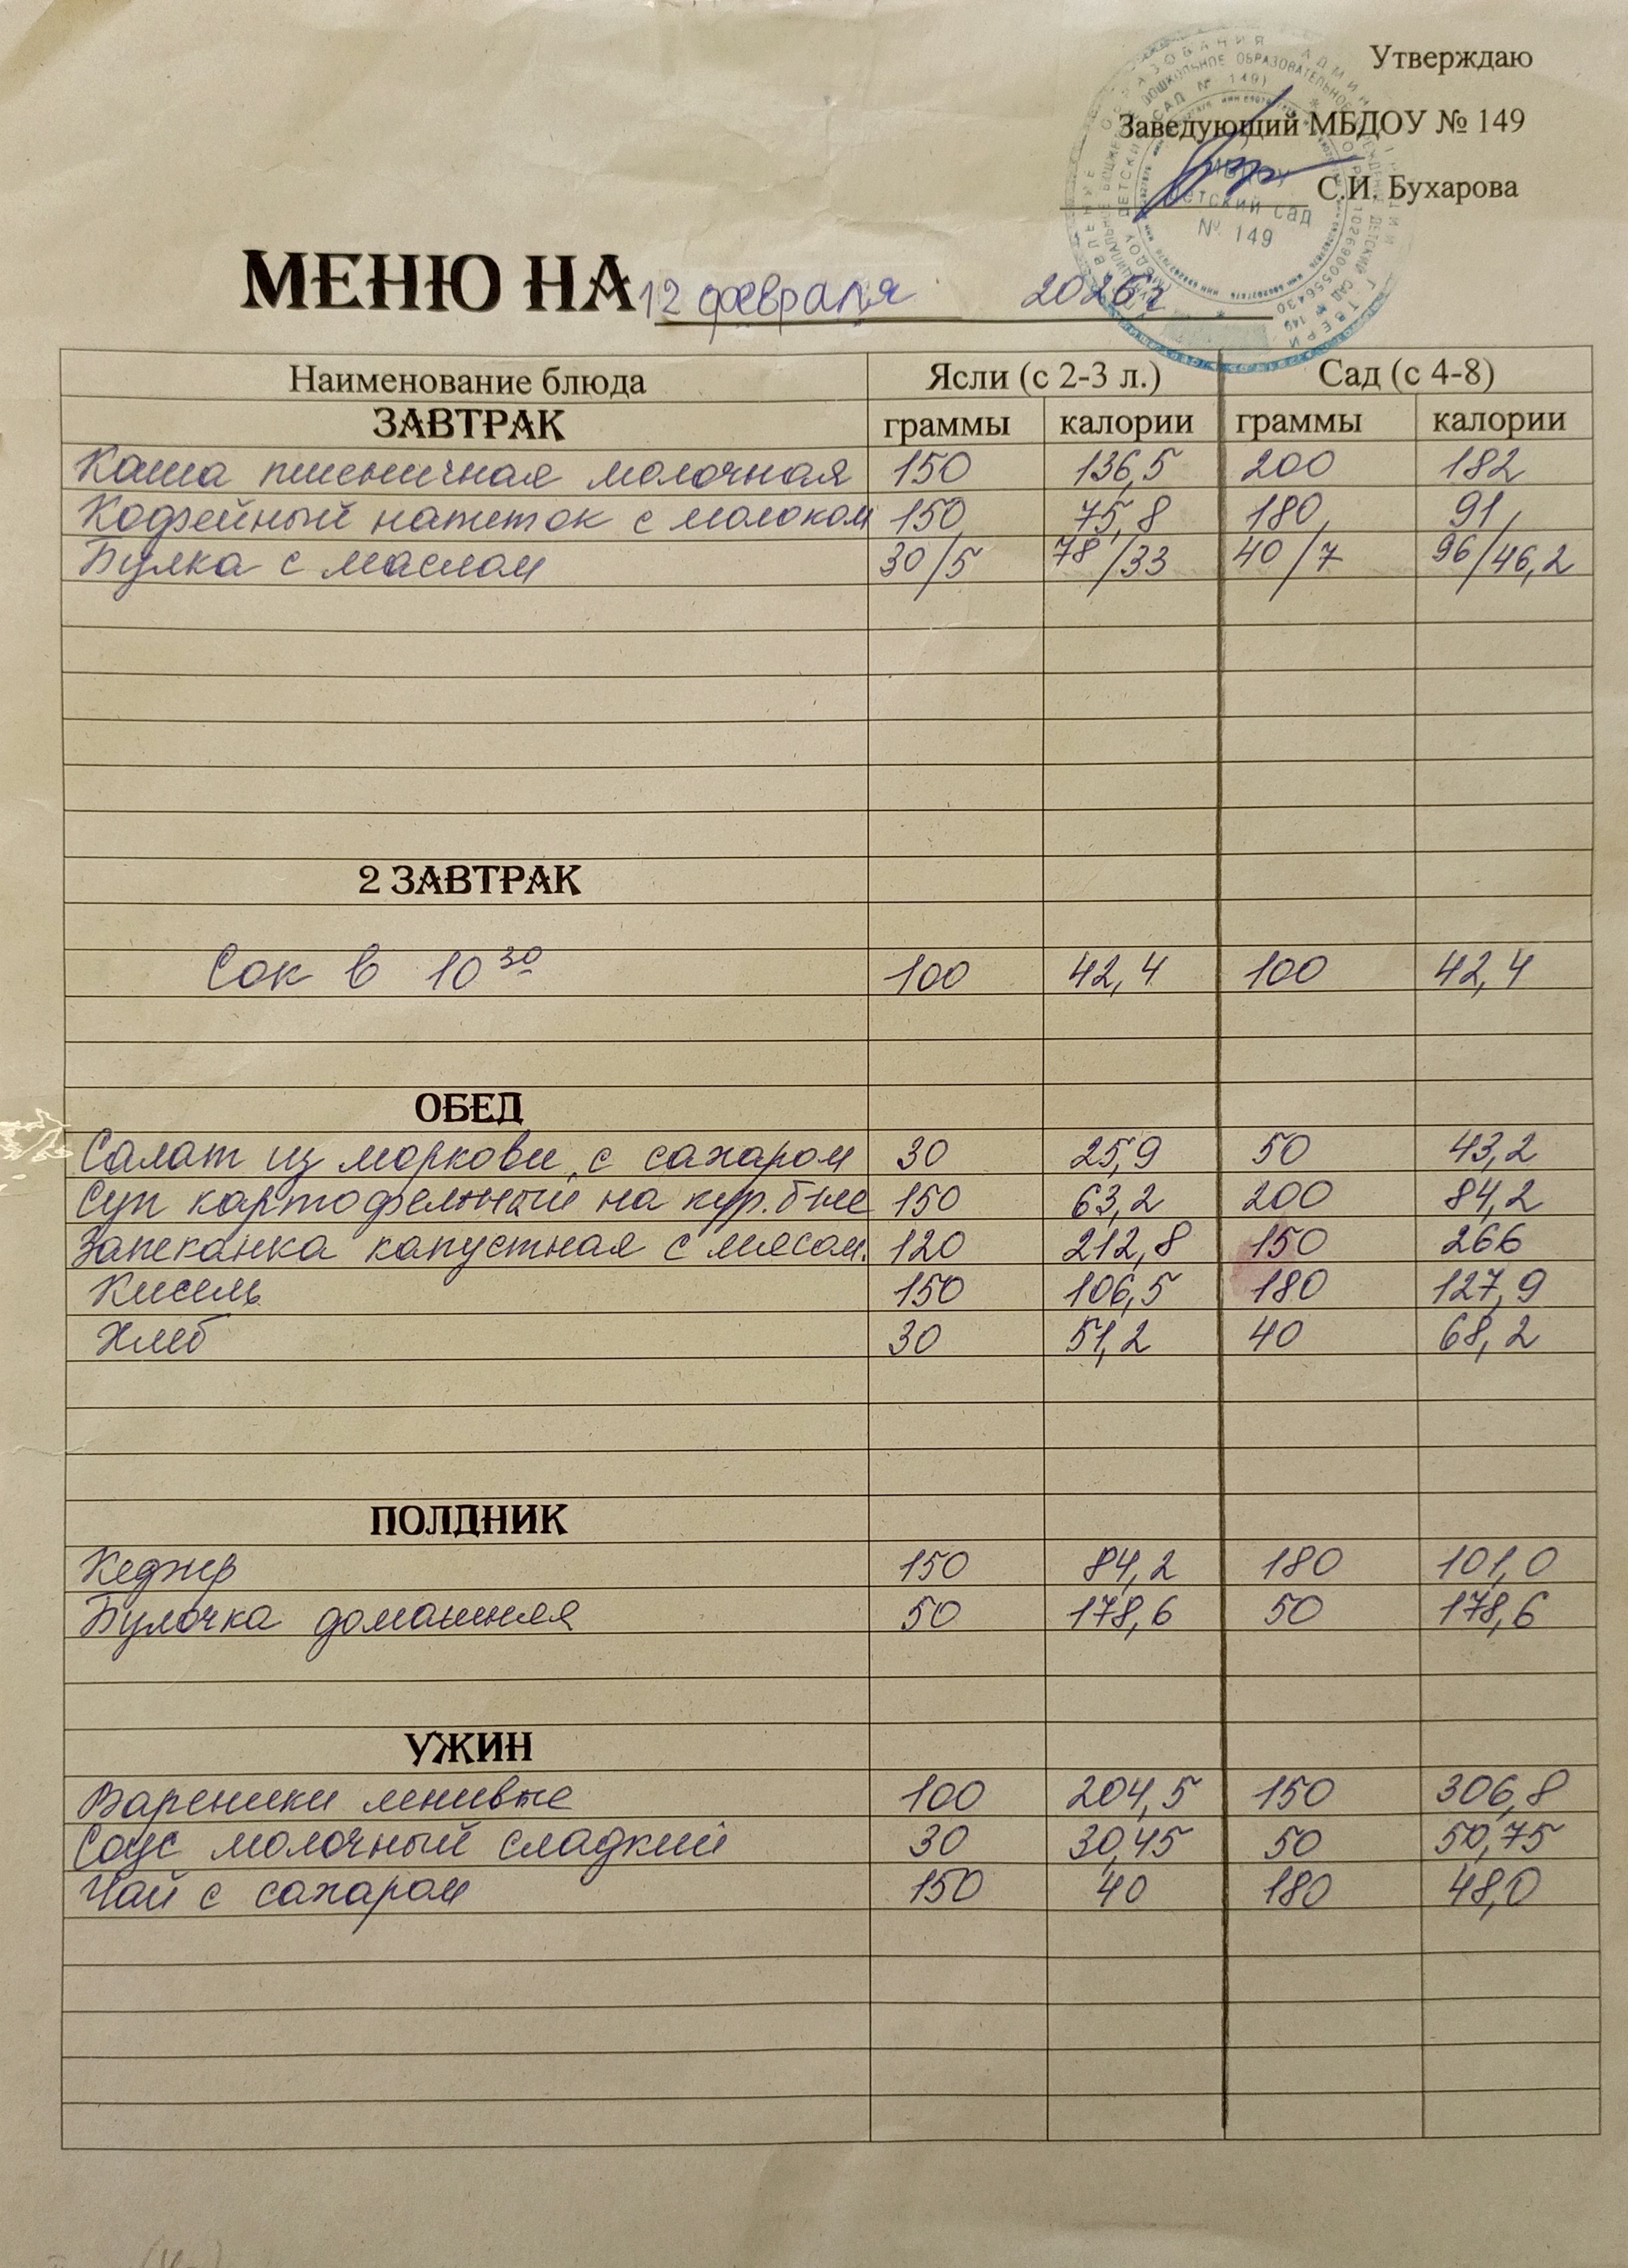 Утверждаю
Заведующий МБДОУ № 149
С.И. Бухарова
МБДОУ
детский сад
№ 149
МЕНЮ НА 12 февраля 2026г
Наименование блюда Ясли (с 2-3 л.) Сад (с 4-8)
ЗАВТРАК граммы калории граммы калории
Каша пшеничная молочная 150 136,5 200 182
Кофейный напиток с молоком 150 75,8 180 91
Булка с маслом 30/5 78/33 40/7 96/46,2
2 ЗАВТРАК
Сок в 10 30 100 42,4 100 42,4
ОБЕД
Салат из моркови с сахаром 30 25,9 50 43,2
Суп картофельный на кур. б-не 150 63,2 200 84,2
Запеканка капустная с мясом. 120 212,8 150 266
Кисель 150 106,5 180 127,9
Хлеб 30 51,2 40 68,2
ПОЛДНИК
150 84,2 180 101,0
Булочка домашняя 50 178,6 50 178,6
УЖИН
Вареники ленивые 100 204,5 150 306,8
Соус молочный сладкий 30 30,45 50 50,75
Чай с сахаром 150 40 180 48,0